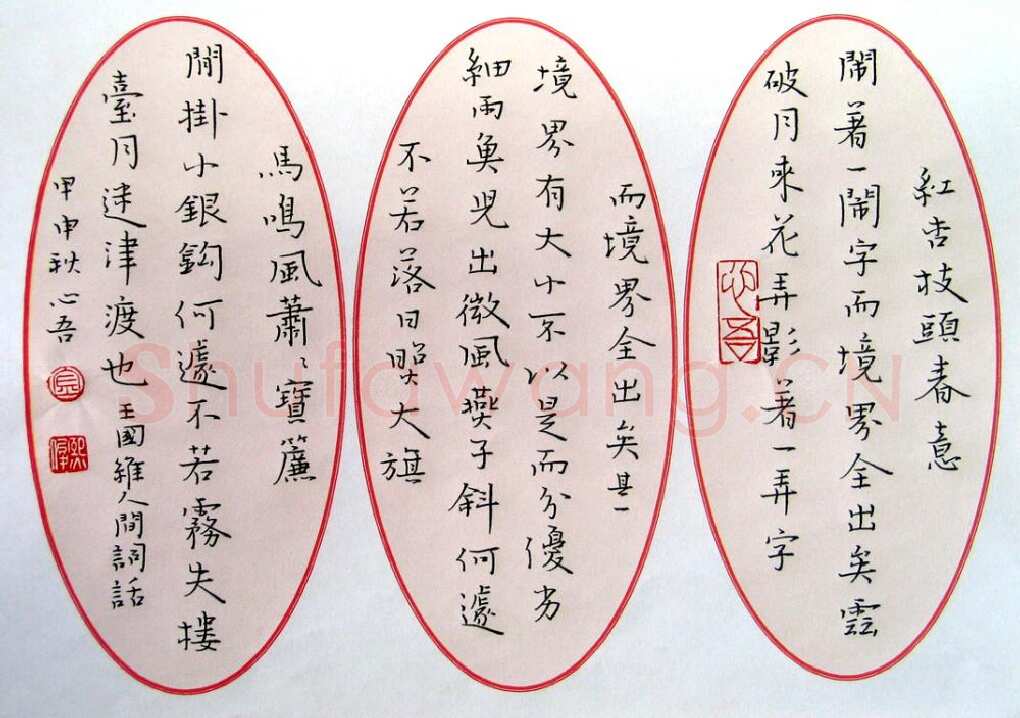 紅杏枝頭春意
鬧著一鬧字而境界全出矣雲
破月來花弄影著一弄字
心吾
而境界全出矣其一
境界有大小不以是而分優劣
細雨魚兒出微風燕子斜何遽
不若落日照大旗
馬鳴風蕭〻寶簾
閒掛小銀鈎何遽不若霧失樓
臺月迷津渡也 王國維人間詞話
甲申秋心吾
Shufawang.CN